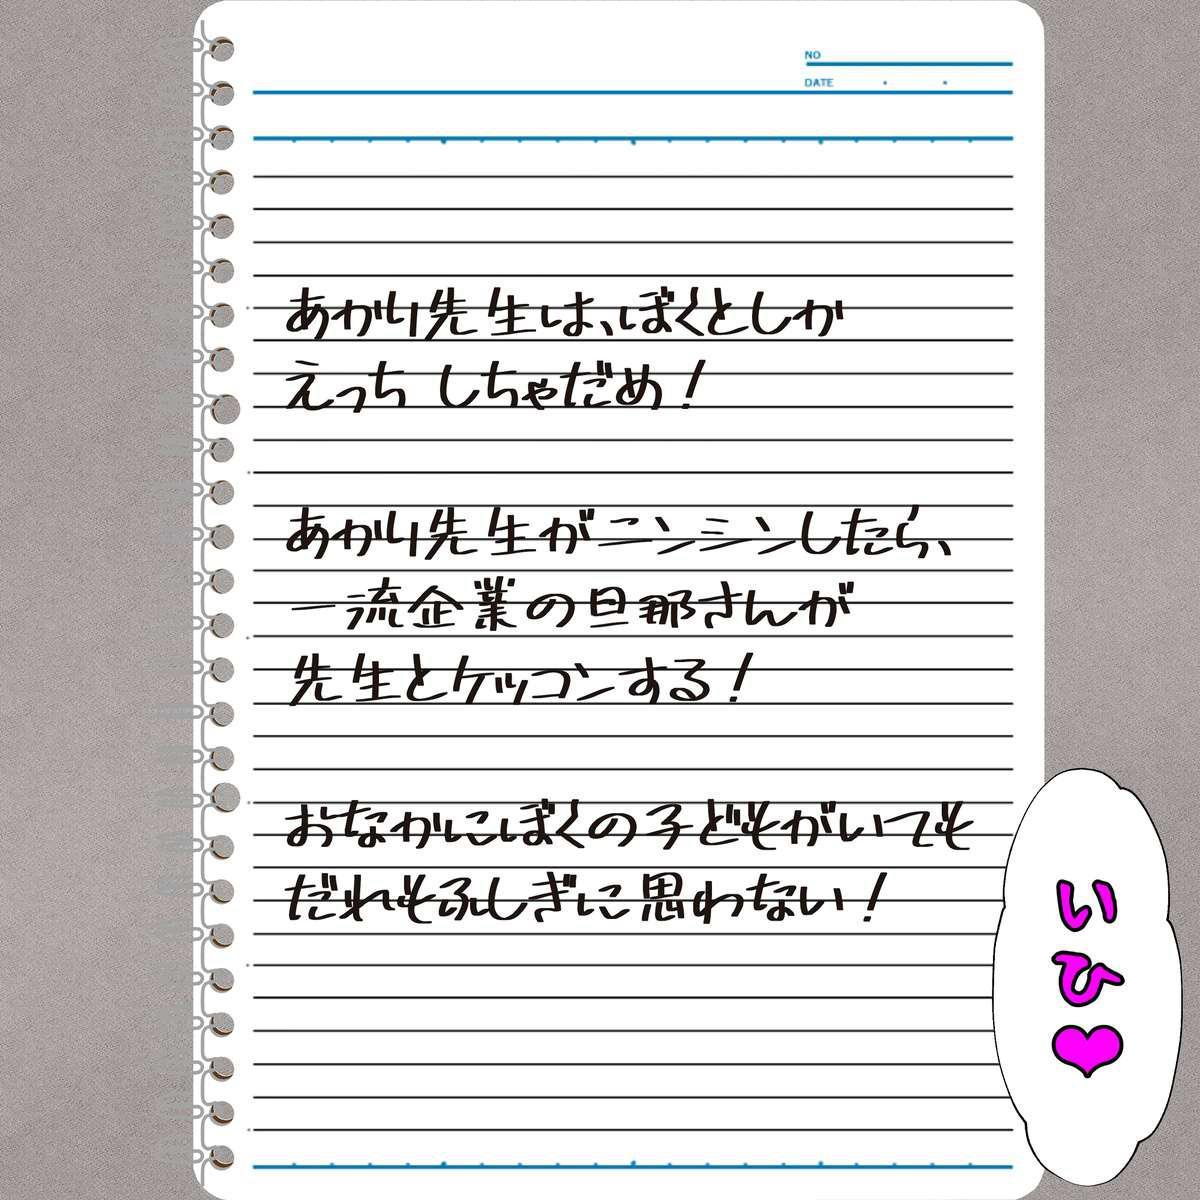 NO
DATE
あかり先生は、ぼくとしか
えっち しちゃだめ！
あかり先生がニンシンしたら、
一流企業の旦那さんが
先生とケッコンする！
おなかにぼくの子どもがいても
だれもふしぎに思わない！
いひ♥